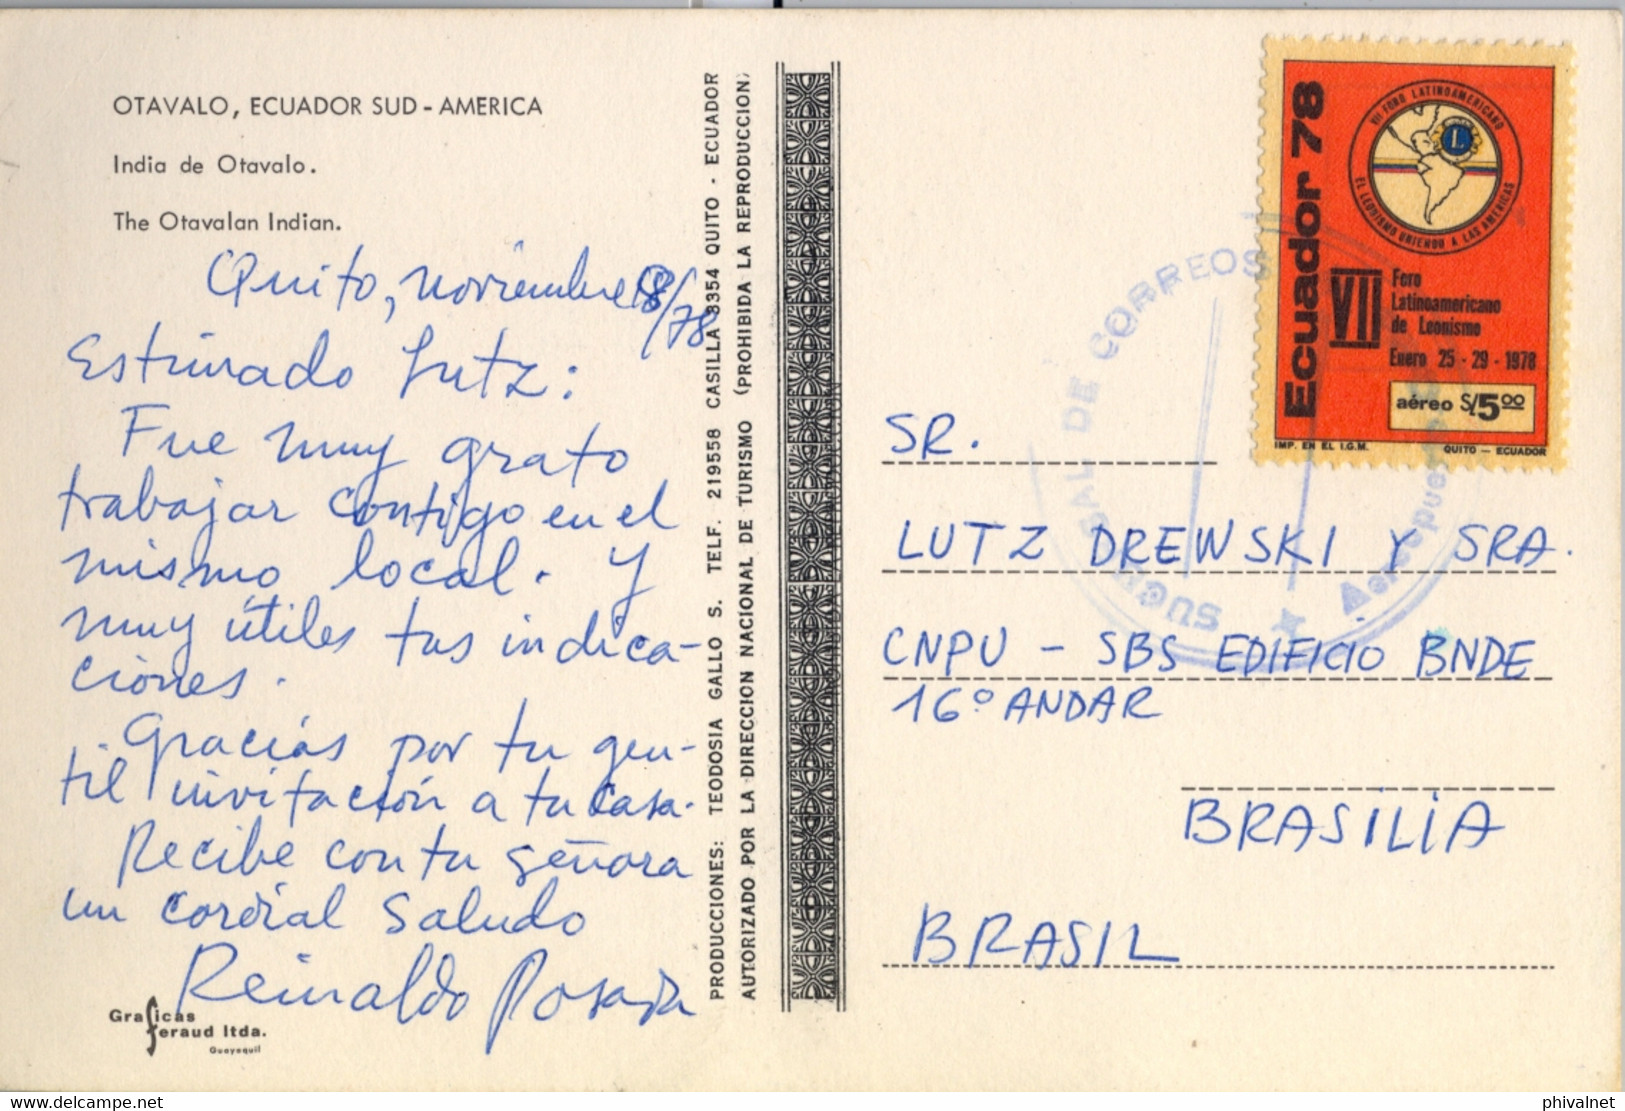 OTAVALO, ECUADOR SUD - AMERICA
India de Otavalo.
The Otavalan Indian.
Quito, noviembre 18/78
Estimado Lutz:
Fue muy grato
trabajar contigo en el
mismo local. Y
muy útiles tus indica-
ciones.
Gracias por tu gen-
til invitación a tu casa.
Recibe con tu señora
un cordial saludo
Reinaldo Posada
Graficas
feraud ltda.
Guayaquil
PRODUCCIONES: TEODOSIA GALLO S. TELF. 219558 CASILLA 8354 QUITO - ECUADOR
AUTORIZADO POR LA DIRECCION NACIONAL DE TURISMO (PROHIBIDA LA REPRODUCCION)
Ecuador 78
VII FORO LATINOAMERICANO
EL LEONISMO UNIENDO A LAS AMERICAS
L
VII
Foro
Latinoamericano
de Leonismo
Enero 25 - 29 - 1978
aéreo S/5.00
IMP. EN EL I.G.M. QUITO — ECUADOR
SUCURSAL DE CORREOS
Aeropuerto
SR.
LUTZ DREWSKI Y SRA.
CNPU - SBS EDIFICIO BNDE
16º ANDAR
BRASILIA
BRASIL
delcampe.net
phivalnet